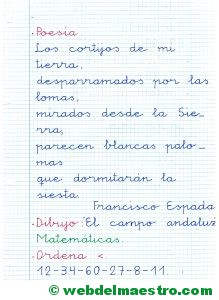 . Poesía
Los cortijos de mi
tierra,
desparramados por las
lomas,
mirados desde la Sie-
rra,
parecen blancas palo-
mas
que dormitarán la
siesta.
Francisco Espada
. Dibujo: El campo andaluz
Matemáticas.
. Ordena <.
12-34-60-27-8-11.
© webdelmaestro.com